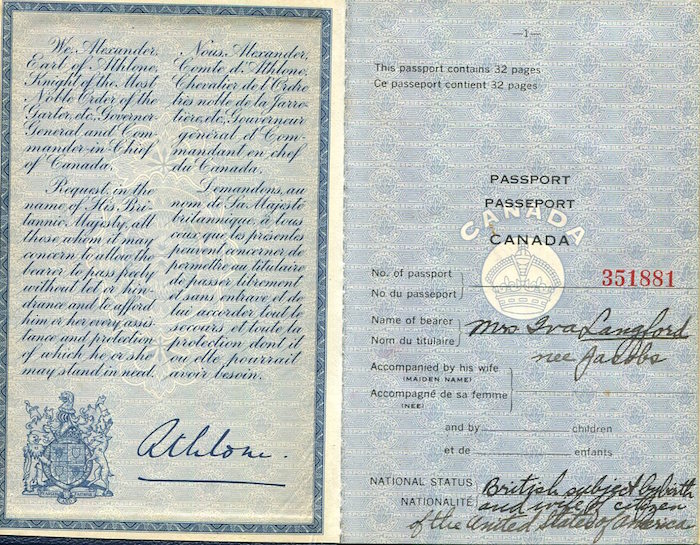 We, Alexander,
Earl of Athlone,
Knight of the Most
Noble Order of the
Garter, etc, Governor
General and Com-
mander-in-Chief
of Canada,
Request, in the
name of His Bri-
tannic Majesty, all
those whom it may
concern to allow the
bearer to pass freely
without let or hin-
drance and to afford
him or her every assis-
tance and protection
of which he or she
may stand in need.
Nous, Alexander,
Comte d'Athlone,
Chevalier de l'Ordre
très noble de la Jarre-
tière, etc, Gouverneur
général et Com-
mandant en chef
du Canada,
Demandons, au
nom de Sa Majesté
britannique, à tous
ceux que les présentes
peuvent concerner de
permettre au titulaire
de passer librement
et sans entrave et de
lui accorder tout le
secours et toute la
protection dont il
ou elle pourrait
avoir besoin.
Athlone.
—1—
This passport contains 32 pages
Ce passeport contient 32 pages
PASSPORT
PASSEPORT
CANADA
CANADA
No. of passport
No du passeport
351881
Name of bearer
Nom du titulaire
Mrs Iva Langford
nee Jacobs
Accompanied by his wife
(MAIDEN NAME)
Accompagné de sa femme
(NÉE)
and by children
et de enfants
NATIONAL STATUS
NATIONALITÉ
British subject by birth
and wife of citizen
of the United States of America